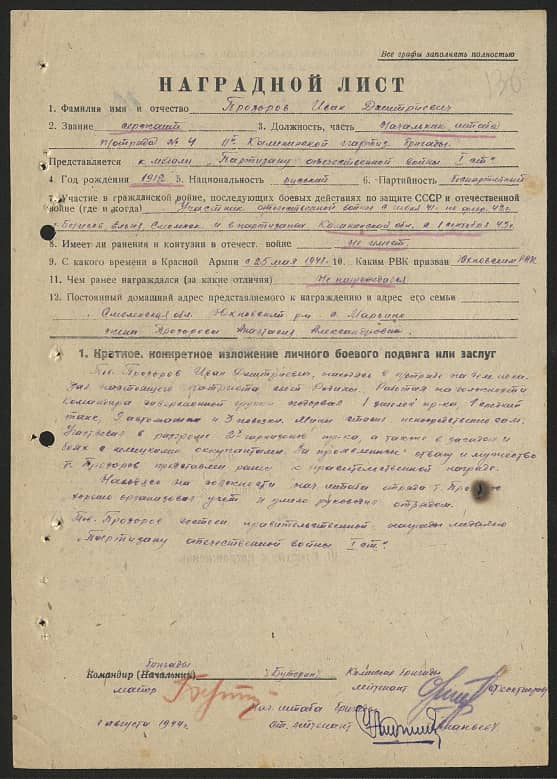 Все графы заполнять полностью
136
НАГРАДНОЙ ЛИСТ
1. Фамилия имя и отчество Прозоров Иван Дмитриевич
2. Звание сержант 3. Должность, часть Начальник штаба
отряда № 4 11й Калининской партиз. бригады.
Представляется к медали „Партизану отечественной войны I ст."
4 Год рождения 1912 5. Национальность русский 6. Партийность беспартийный
7. Участие в гражданской войне, последующих боевых действиях по защите СССР и отечественной
войне (где и когда) Участник отечественной войны с июля 41. по
Смоленск и в партизанах Калининской обл. с 1
8. Имеет ли ранения и контузии в отечест. войне не имеет
9. С какого времени в Красной Армии с 25 мая 1941. 10. Каким РВК призван Юхновским РВК
11. Чем ранее награждался (за какие отличия) Не награждался
12. Постоянный домашний адрес представляемого к награждению и адрес его семьи
Смоленская обл. Юхновский р-н д. Марьино
жена Прозорова Анастасия Александровна.
1. Краткое, конкретное изложение личного боевого подвига или заслуг
Тов. Прозоров Иван Дмитриевич, находясь в отряде
настоящего патриота своей Родины. Работая на должности
командира диверсионной группы подорвал 1 эшелон пр-ка, 1 легкий
танк, 5 автомашин и 3 повозки. Мины ставил непосредственно сам.
Участвовал в разгроме 2х гарнизонов пр-ка, а также в засадах и
боях с немецкими оккупантами. За проявленные отвагу и мужество
т. Прозоров представлен ранее к правительственной награде.
Находясь на должности нач. штаба отряда т. Прозоров
хорошо организовал учет и умело руководил отрядом.
Тов. Прозоров достоин правительственной награды медалью
„Партизану отечественной войны I ст."
Бригады
Командир (Начальник) (Буторин) Комиссар бригады
майор лейтенант
Нач. штаба бригады
1 августа 1944 г. ст. лейтенант